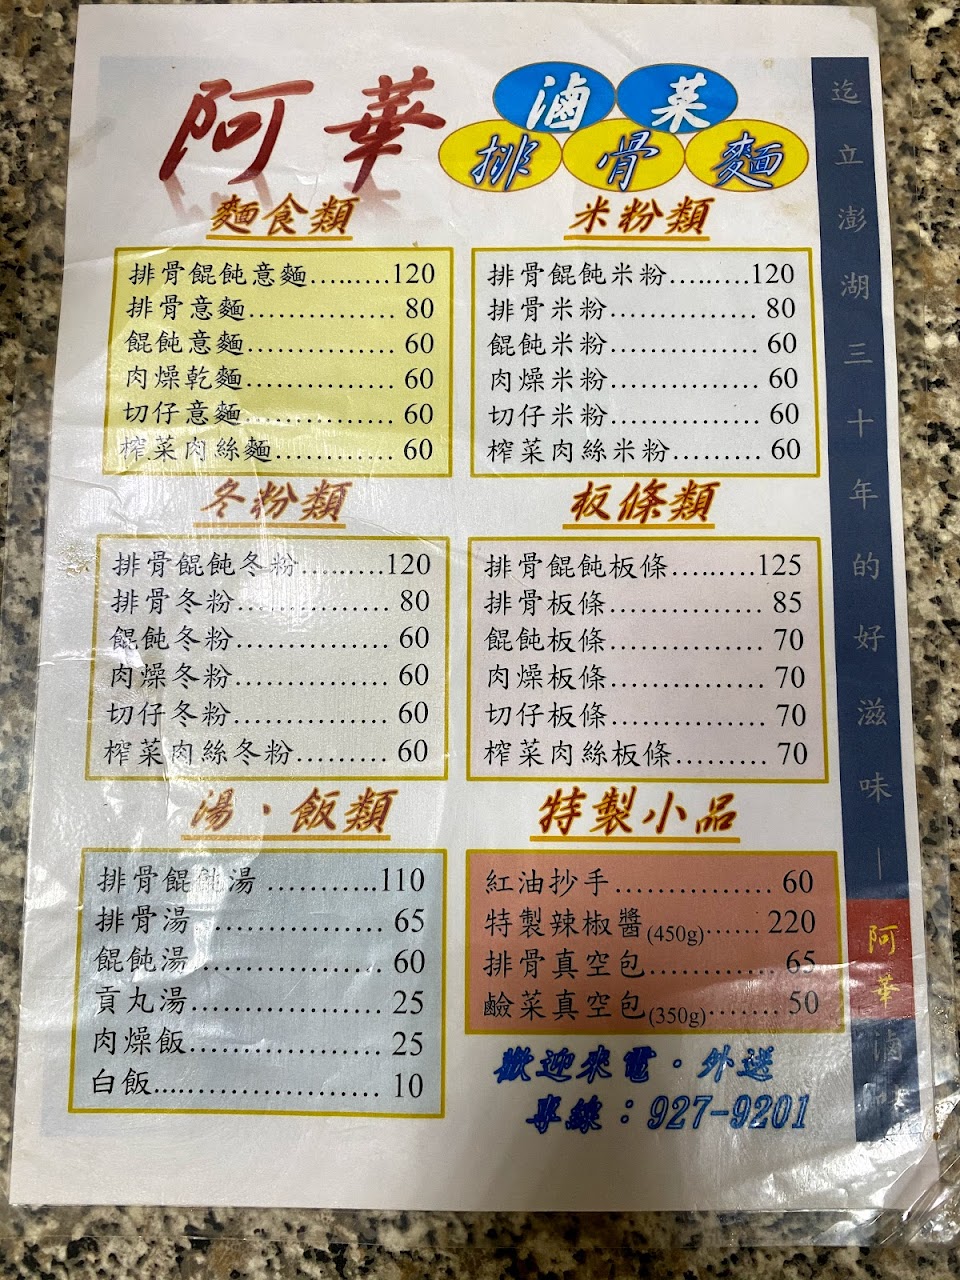 阿華
滷菜
排骨麵
麵食類
排骨餛飩意麵........120
排骨意麵............... 80
餛飩意麵............... 60
肉燥乾麵............... 60
切仔意麵............... 60
榨菜肉絲麵............ 60
米粉類
排骨餛飩米粉........120
排骨米粉............... 80
餛飩米粉............... 60
肉燥米粉............... 60
切仔米粉............... 60
榨菜肉絲米粉......... 60
冬粉類
排骨餛飩冬粉........120
排骨冬粉............... 80
餛飩冬粉............... 60
肉燥冬粉............... 60
切仔冬粉............... 60
榨菜肉絲冬粉......... 60
板條類
排骨餛飩板條........125
排骨板條............... 85
餛飩板條............... 70
肉燥板條............... 70
切仔板條............... 70
榨菜肉絲板條......... 70
湯・飯類
排骨餛飩湯 ...........110
排骨湯.................. 65
餛飩湯.................. 60
貢丸湯.................. 25
肉燥飯.................. 25
白飯...................... 10
特製小品
紅油抄手............... 60
特製辣椒醬(450g)...... 220
排骨真空包............ 65
鹼菜真空包(350g)....... 50
歡迎來電・外送
專線：927-9201
迄立澎湖三十年的好滋味｜阿華滷